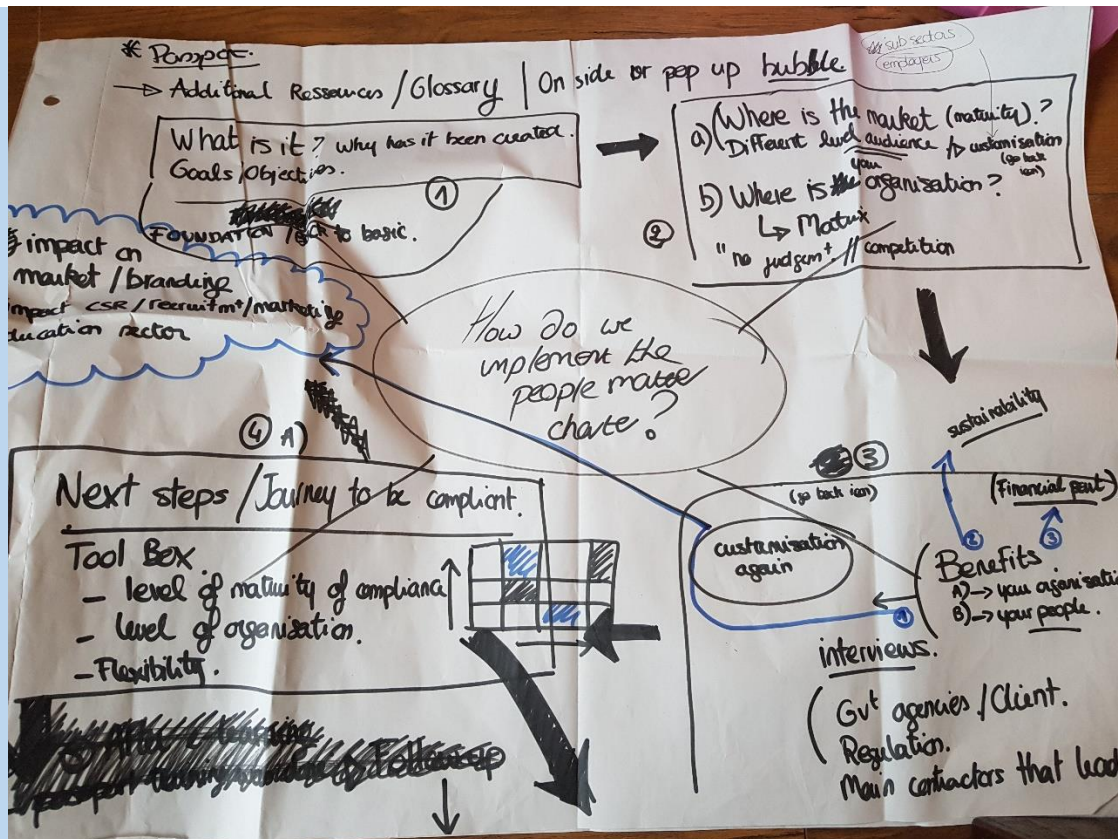 * Passport.
→ Additional Ressources / Glossary | On side or pop up bubble
sub sectors
employers
What is it? Why has it been created.
Goals/Objectives.
①
FOUNDATION / to basic.
a) Where is the market (maturity)?
Different level audience / customisation
(go back icon)
you
b) Where is organisation?
↳ Matrix
"no judgemt" // competition
②
impact on
market / branding
impact CSR / recruitmt / marketing
education sector
How do we
implement the
people matter
charte?
sustainability
④ A)
Next steps / Journey to be compliant.
Tool Box.
- level of maturity of compliance
- level of organisation.
- Flexibility.
③
(go back icon)
customisation
again
(Financial part)
② ③
Benefits.
A) → your organisation
B) → your people.
①
interviews.
Gvt agencies / Client.
Regulation.
Main contractors that lead